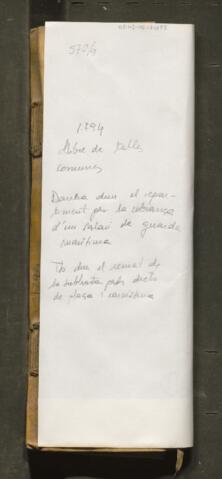 1.894
Llibre de talles
comunes
Darrera duu el repar-
timent per la cobrança
d'un salari de guarda
marítima
Tb duu el remat de
la subhasta pels drets
de plaça i carnisseria